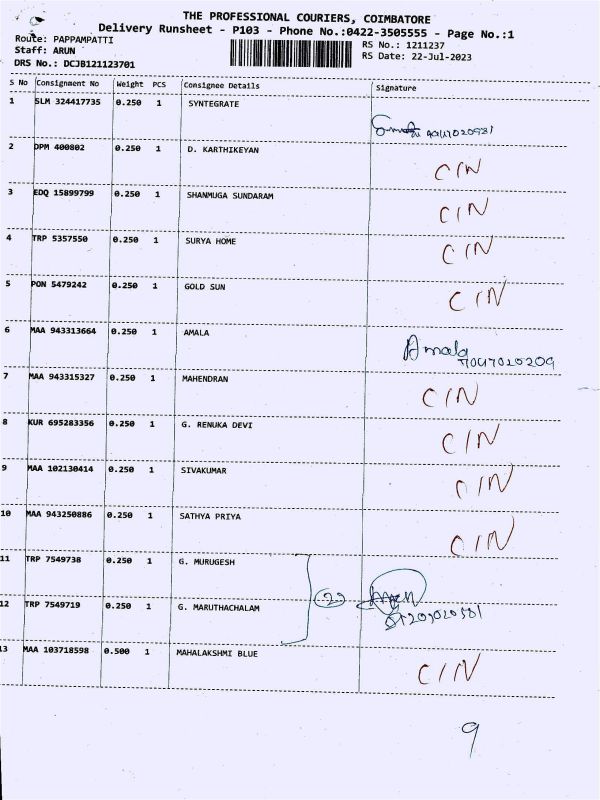 THE PROFESSIONAL COURIERS, COIMBATORE
Delivery Runsheet - P103 - Phone No.:0422-3505555 - Page No.:1
Route: PAPPAMPATTI
RS No.: 1211237
Staff: ARUN
RS Date: 22-Jul-2023
DRS No.: DCJB121123701
S No Consignment No Weight PCS Consignee Details Signature
1 SLM 324417735 0.250 1 SYNTEGRATE
2 DPM 400802 0.250 1 D. KARTHIKEYAN CIN
3 EDQ 15899799 0.250 1 SHANMUGA SUNDARAM CIN
4 TRP 5357550 0.250 1 SURYA HOME CIN
5 PON 5479242 0.250 1 GOLD SUN CIN
6 MAA 943313664 0.250 1 AMALA Amala
7 MAA 943315327 0.250 1 MAHENDRAN CIN
8 KUR 695283356 0.250 1 G. RENUKA DEVI CIN
9 MAA 102130414 0.250 1 SIVAKUMAR CIN
10 MAA 943250886 0.250 1 SATHYA PRIYA CIN
11 TRP 7549738 0.250 1 G. MURUGESH
12 TRP 7549719 0.250 1 G. MARUTHACHALAM
13 MAA 103718598 0.500 1 MAHALAKSHMI BLUE CIN
9